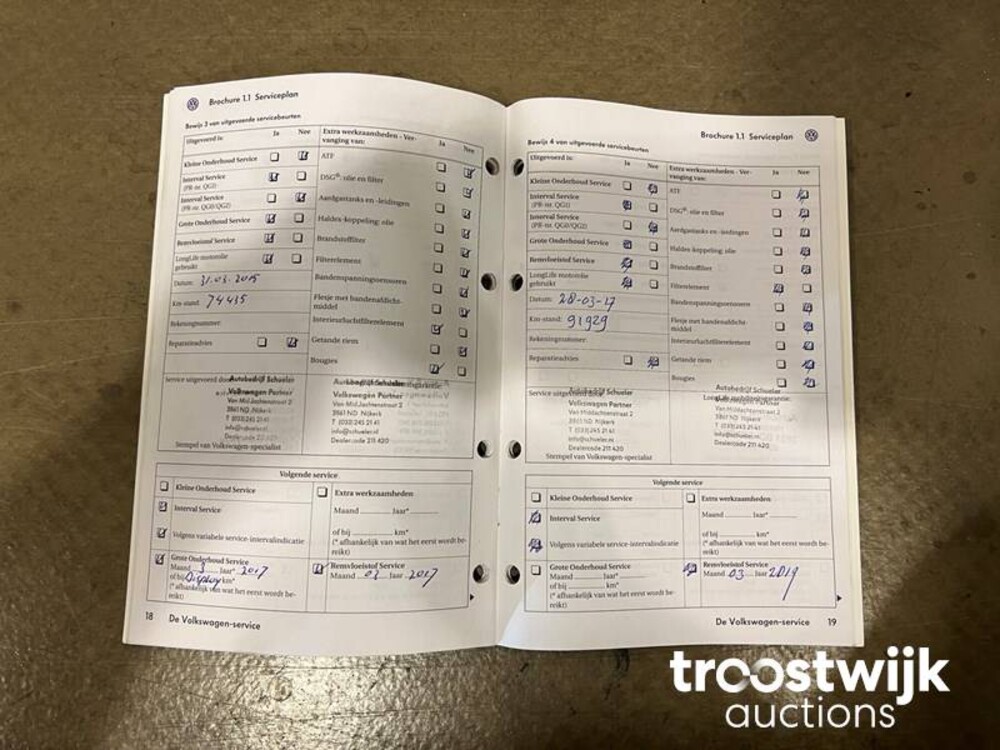 Brochure 1.1 Serviceplan
Bewijs 3 van uitgevoerde servicebeurten
Uitgevoerd is: Ja Nee
Kleine Onderhoud Service
Interval Service
(PR-nr. QG1)
Interval Service
(PR-nr. QG0/QG2)
Grote Onderhoud Service
Remvloeistof Service
LongLife motorolie
gebruikt
Datum: 31.03.2015
Km-stand: 74435
Rekeningnummer:
Reparatieadvies
Extra werkzaamheden - Ver-
vanging van: Ja Nee
ATF
DSG®: olie en filter
Aardgastanks en -leidingen
Haldex-koppeling: olie
Brandstoffilter
Filterelement
Bandenspanningssensoren
Flesje met bandenafdicht-
middel
Interieurluchtfilterelement
Getande riem
Bougies
Service uitgevoerd door:
Autobedrijf Schueler
Volkswagen Partner
3861 ND Nijkerk
T (033) 245 21 41
info@schueler.nl
Stempel van Volkswagen-specialist
Autobedrijf Schueler
Volkswagen Partner
3861 ND Nijkerk
T (033) 245 21 41
info@schueler.nl
Dealercode 211 420
Volgende service
Kleine Onderhoud Service
Interval Service
Volgens variabele service-intervalindicatie
Grote Onderhoud Service
Maand 3 Jaar* 2017
of bij Display km*
(* afhankelijk van wat het eerst wordt be-
reikt)
Extra werkzaamheden
Maand Jaar*
of bij km*
(* afhankelijk van wat het eerst wordt be-
reikt)
Remvloeistof Service
Maand 03 Jaar 2017
18 De Volkswagen-service
Brochure 1.1 Serviceplan
Bewijs 4 van uitgevoerde servicebeurten
Uitgevoerd is: Ja Nee
Kleine Onderhoud Service
Interval Service
(PR-nr. QG1)
Interval Service
(PR-nr. QG0/QG2)
Grote Onderhoud Service
Remvloeistof Service
LongLife motorolie
gebruikt
Datum: 28-03-17
Km-stand: 91929
Rekeningnummer:
Reparatieadvies
Extra werkzaamheden - Ver-
vanging van: Ja Nee
ATF
DSG®: olie en filter
Aardgastanks en -leidingen
Haldex-koppeling: olie
Brandstoffilter
Filterelement
Bandenspanningssensoren
Flesje met bandenafdicht-
middel
Interieurluchtfilterelement
Getande riem
Bougies
Service uitgevoerd door:
Autobedrijf Schueler
Volkswagen Partner
Van Middachtenstraat 2
3861 ND Nijkerk
T (033) 245 21 41
info@schueler.nl
Dealercode 211 420
Stempel van Volkswagen-specialist
Autobedrijf Schueler
LongLife mobiliteitsgarantie:
Volkswagen Partner
Van Middachtenstraat 2
3861 ND Nijkerk
T (033) 245 21 41
info@schueler.nl
Dealercode 211 420
Volgende service
Kleine Onderhoud Service
Interval Service
Volgens variabele service-intervalindicatie
Grote Onderhoud Service
Maand Jaar*
of bij km*
(* afhankelijk van wat het eerst wordt be-
reikt)
Extra werkzaamheden
Maand Jaar*
of bij km*
(* afhankelijk van wat het eerst wordt be-
reikt)
Remvloeistof Service
Maand 03 Jaar 2019
De Volkswagen-service 19
troostwijk
auctions